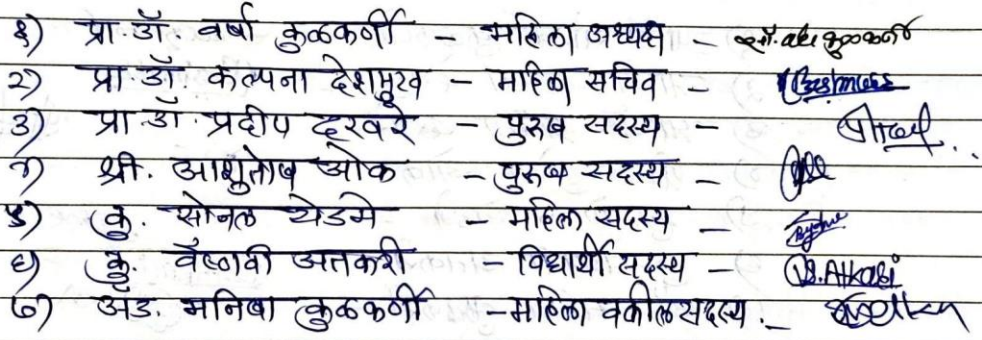 १) प्रा. डॉ. वर्षा कुळकर्णी – महिला अध्यक्ष – सौ. वर्षा कुळकर्णी
२) प्रा. डॉ. कल्पना देशमुख – महिला सचिव –
३) प्रा. डॉ. प्रदीप दरवरे – पुरुष सदस्य –
४) श्री. आशुतोष ओक – पुरुष सदस्य –
५) कु. सोनल येडमे – महिला सदस्य –
६) कु. वैष्णवी अतकरी – विद्यार्थी सदस्य – V.S.Atkari
७) अॅड. मनिषा कुळकर्णी – महिला वकील सदस्य. –